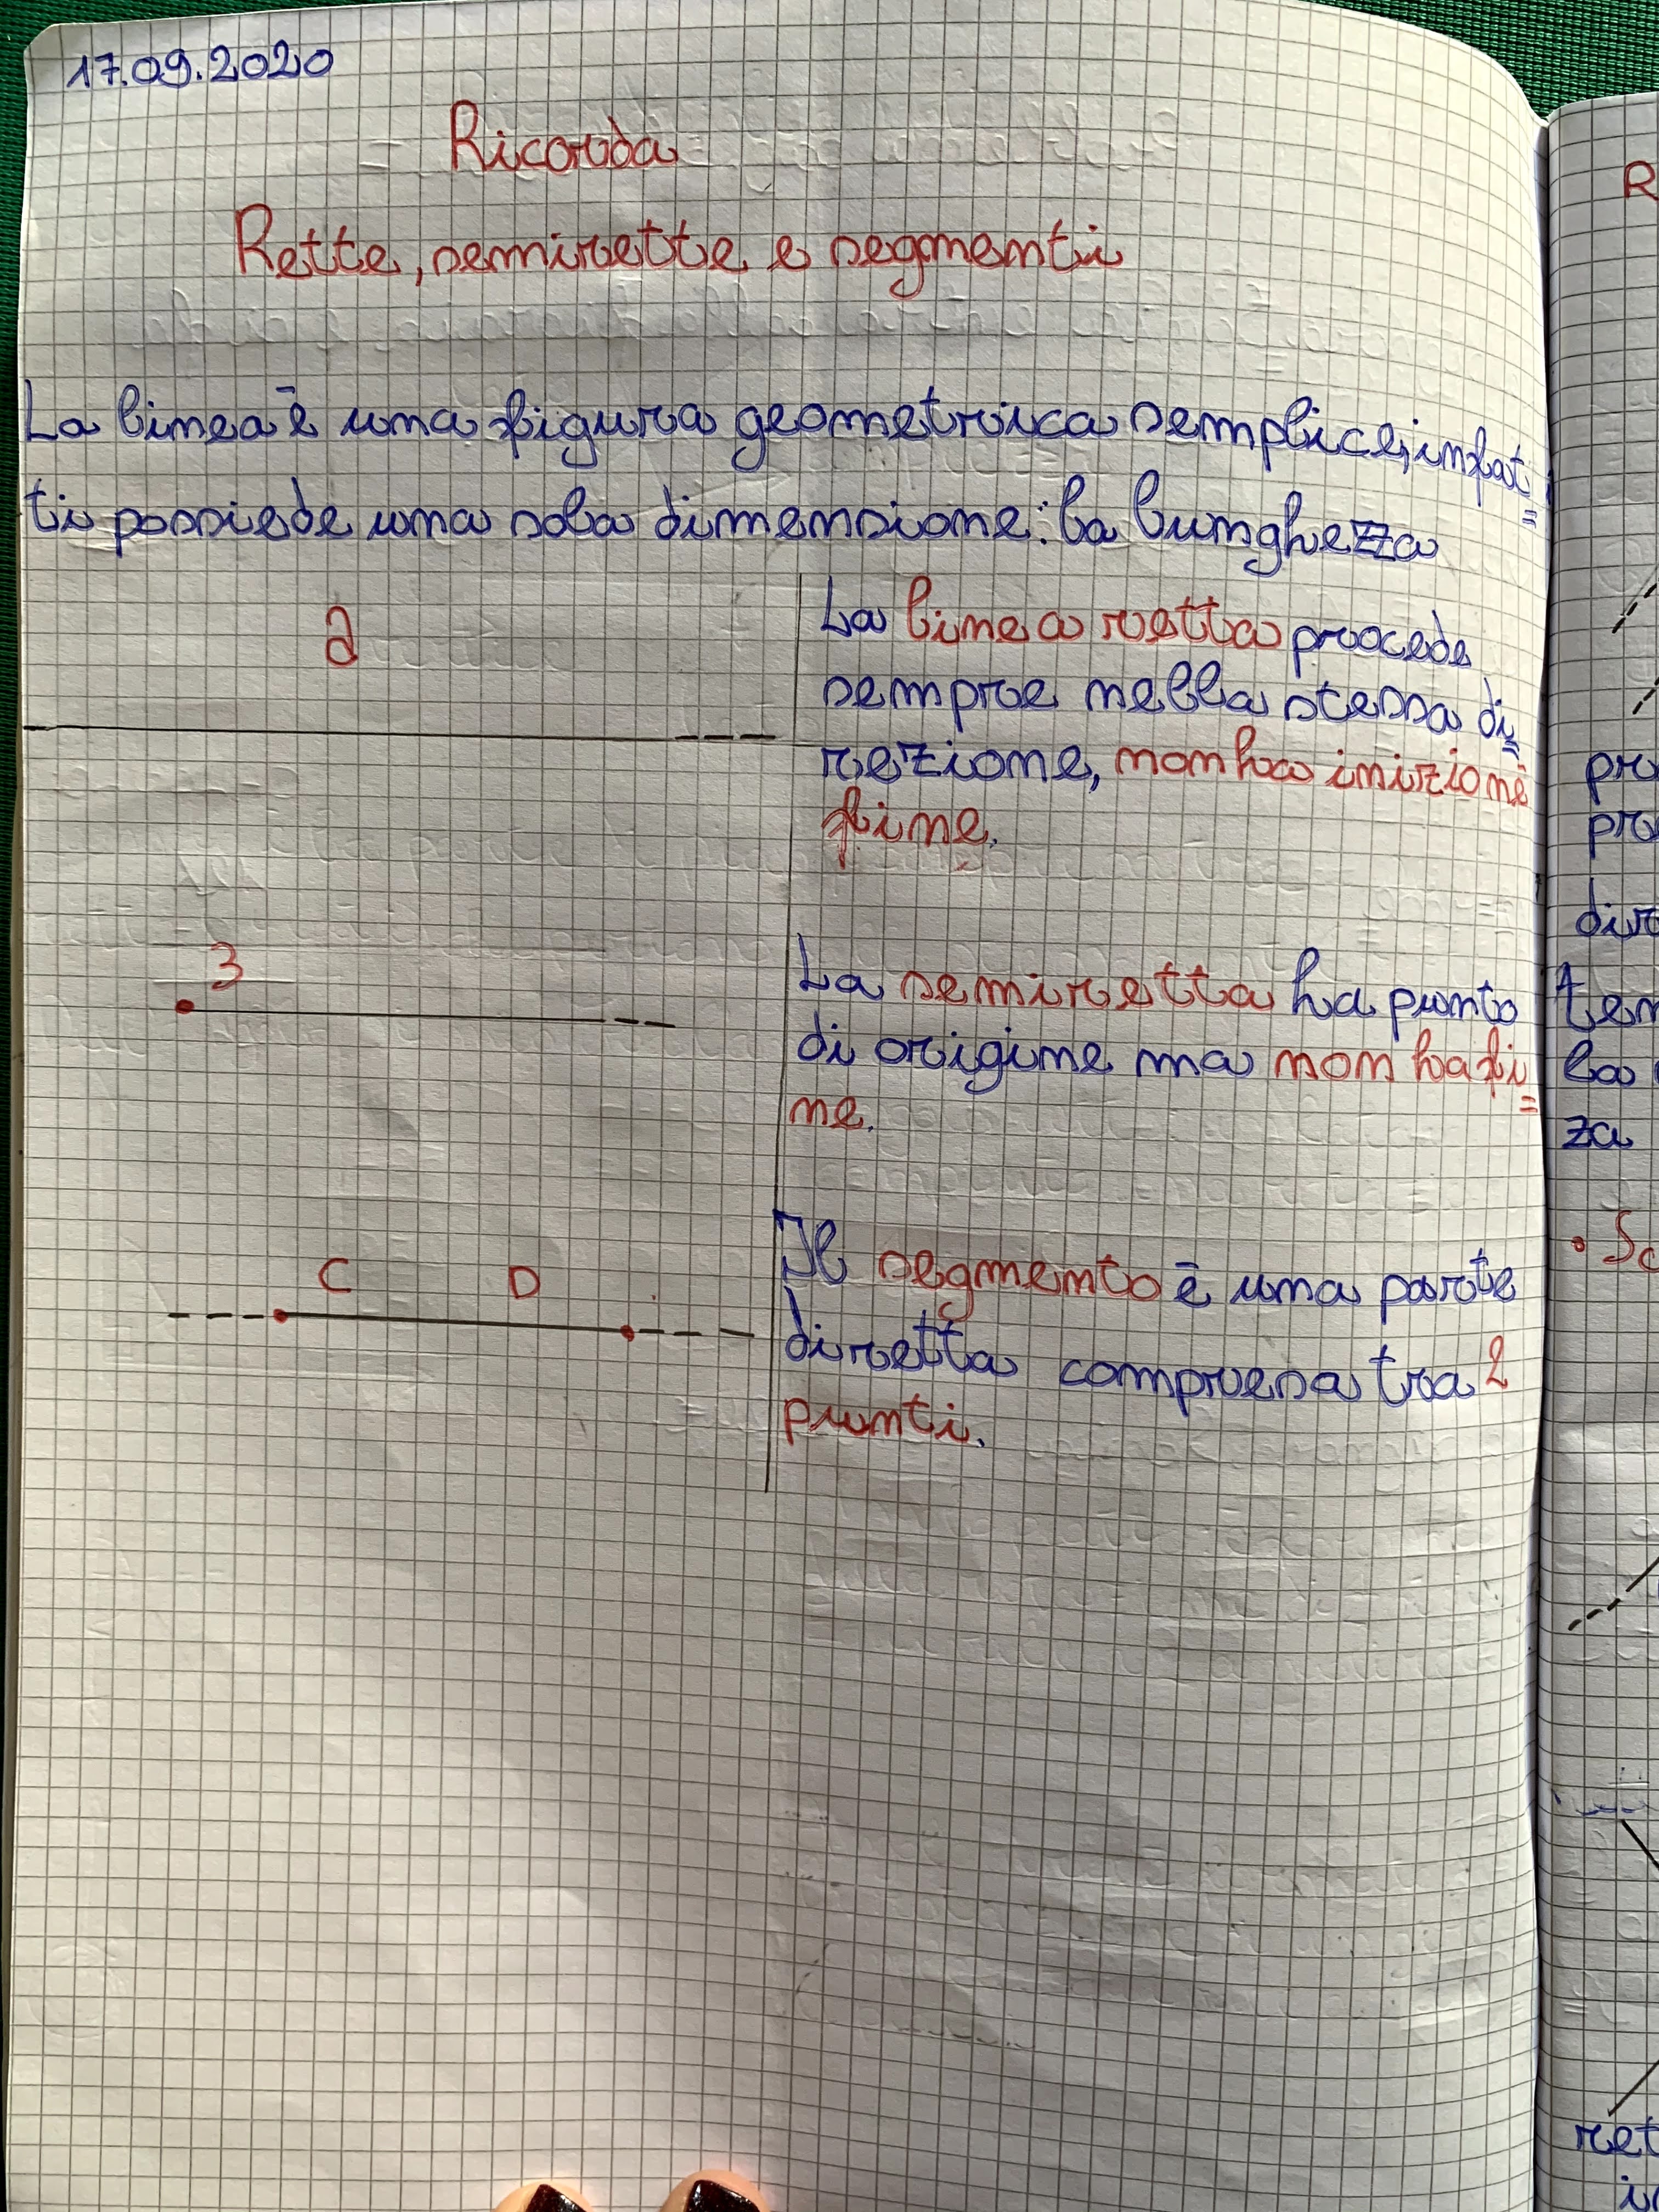 17.09.2020
Ricorda
Rette, semirette e segmenti
La linea è una figura geometrica semplice, infat=
ti possiede una sola dimensione: la lunghezza
a
La linea retta procede
sempre nella stessa di=
rezione, non ha inizio nè
fine.
3
La semiretta ha punto
di origine ma non ha fi=
ne.
C D
Il segmento è una parte
di retta compresa tra 2
punti.
R
pro
pro
dire
ten
la
za
• Sc
ret